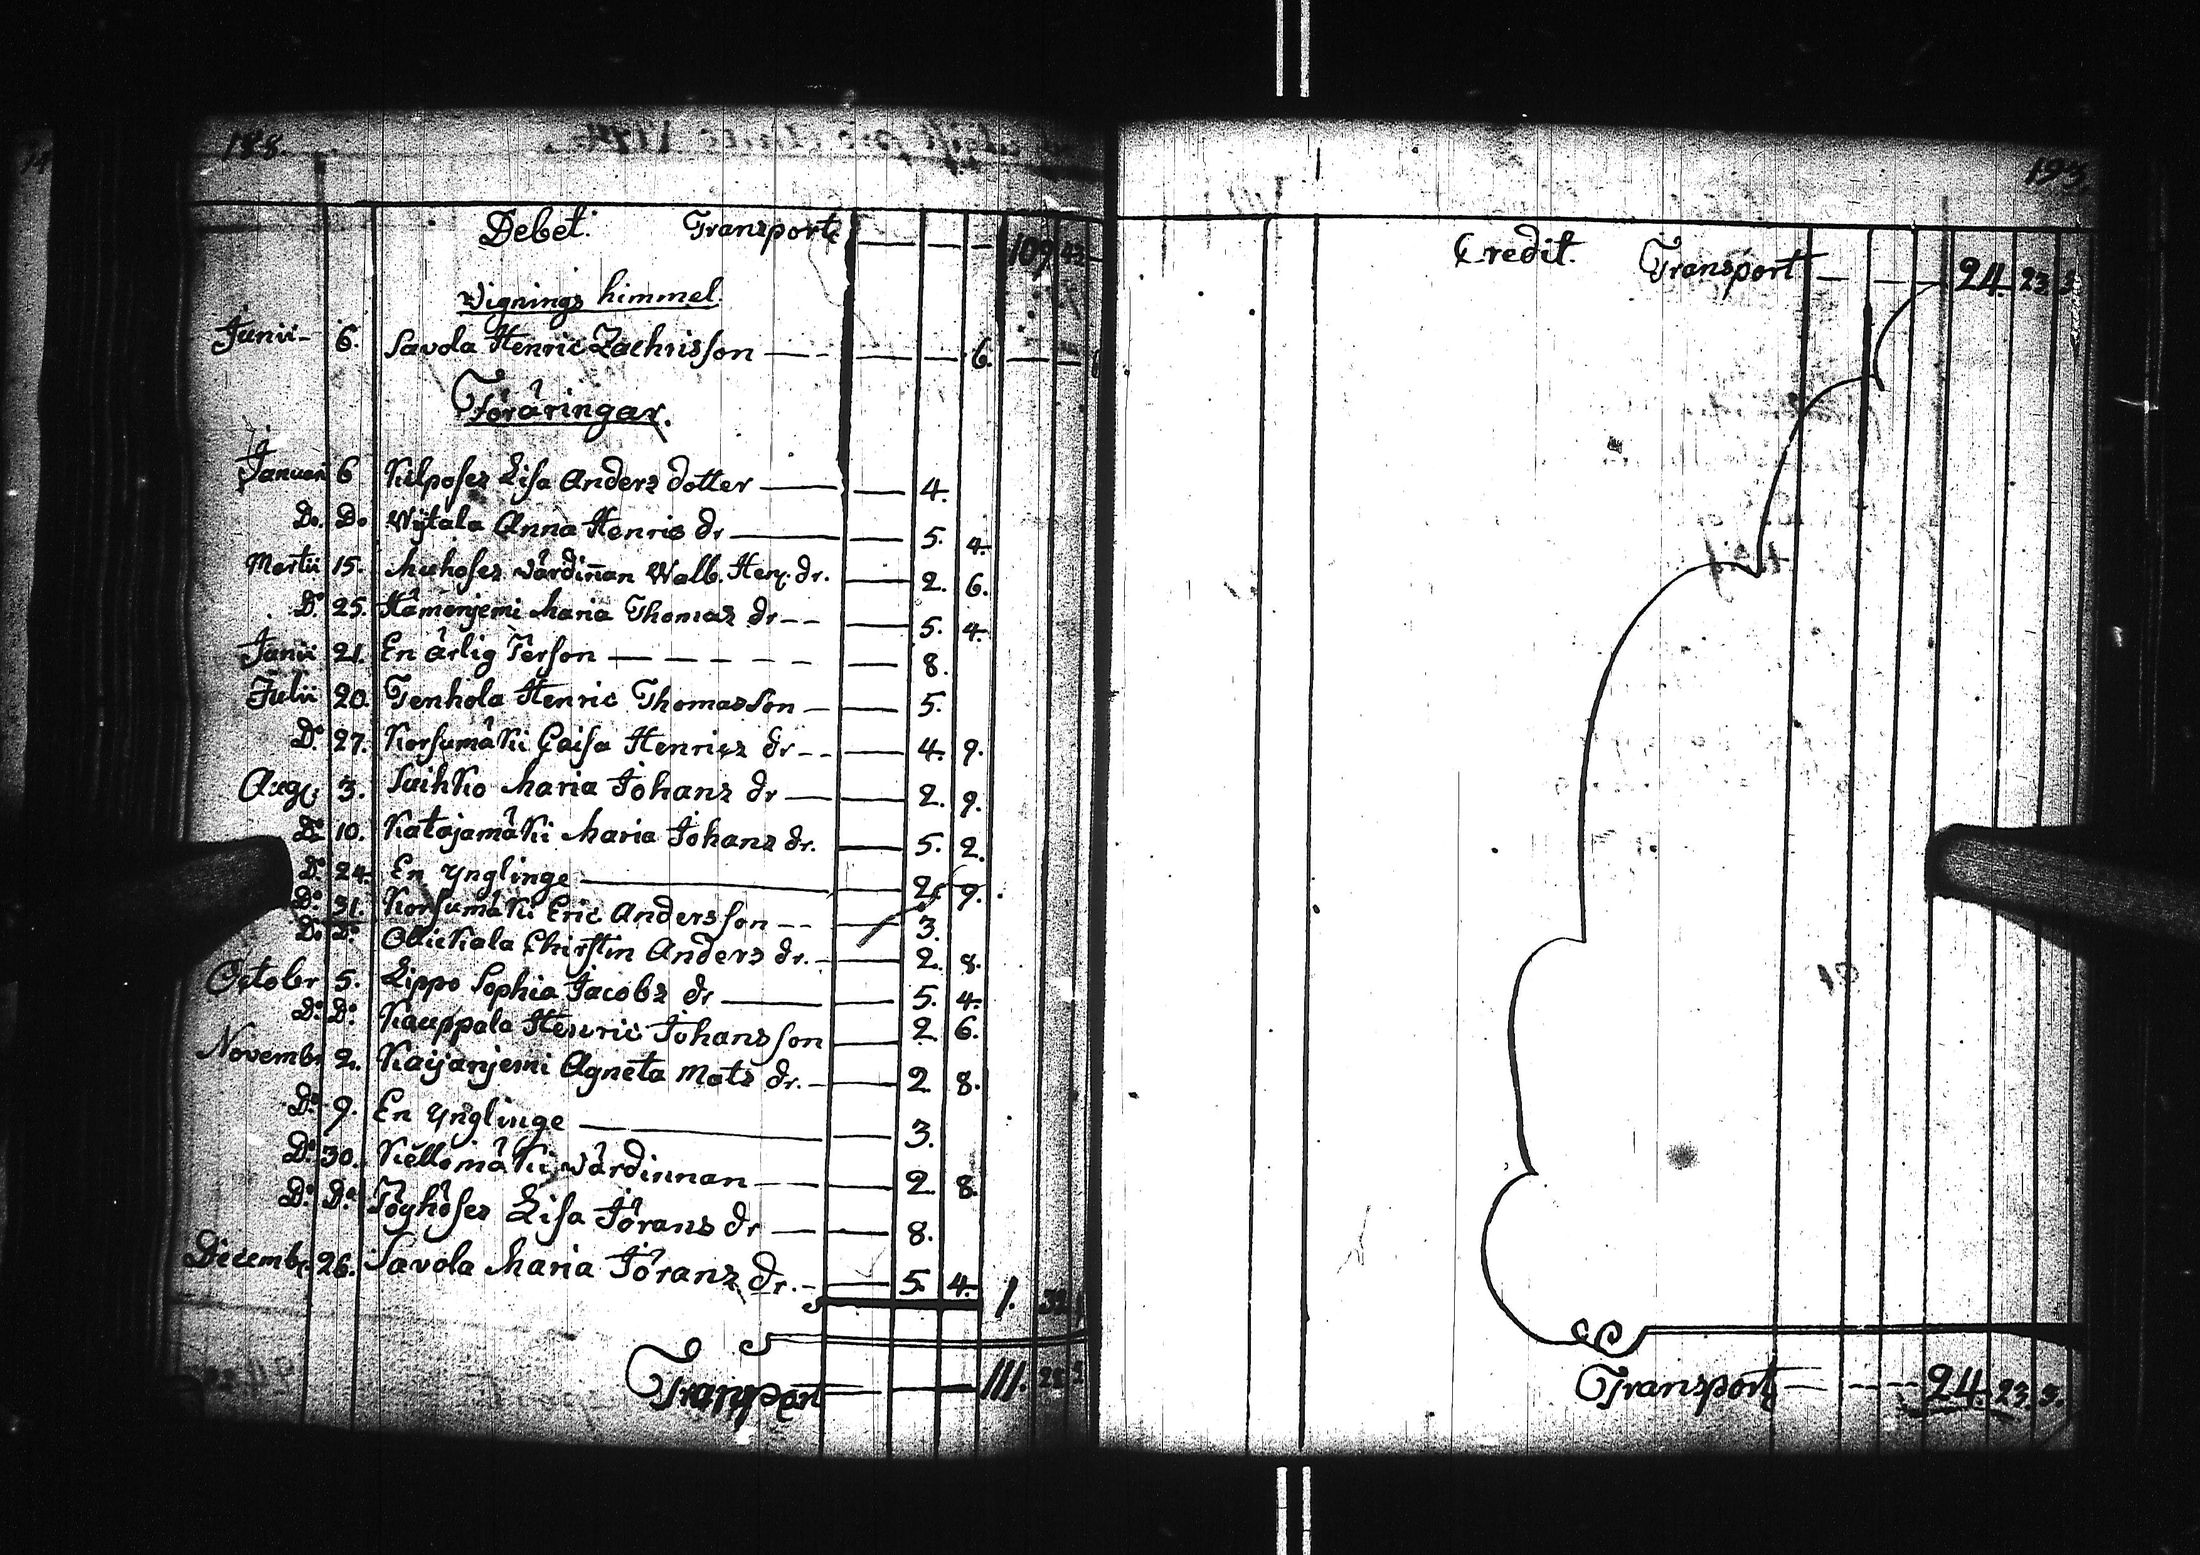 188.
Debet. Transport 109 42
Vignings himmel.
Junii 6. Savola Henric Zachrisson 6.
Föräringar.
Januari 6 Kilposes Lisa Anders dotter 4.
Do. Do Wijtala Anna Henrics dr 5. 4.
Martii 15. Muhoses värdinnan Walb. Henr. dr. 2. 6.
Do 25. Hämenjemi Maria Thomas dr 5. 4.
Junii 21. En ärlig Person 8.
Julii 20. Tenhola Henric Thomasson 5.
Do 27. Korsumäki Caisa Henrics dr 4. 9.
Aug. 3. Suihko Maria Johans dr 2. 9.
Do 10. Katajamäki Maria Johans dr. 5. 2.
Do 24. En ynglinge 2. 9.
Do 31. Korsumäki Eric Andersson 3.
Do Do Ollickala Chirstin Anders dr. 2. 8.
Octobr 5. Lippo Sophia Jacobs dr 5. 4.
Do Do Kauppala Henric Johansson 2 6.
Novembr 2. Kaijanjemi Agneta Mats dr. 2 8.
Do 9. En ynglinge 3.
Do 30. Kellomäki värdinnan 2. 8.
Do Do Pöyhöses Lisa Jörans dr 8.
Decembr 26. Savola Maria Jörans dr. 5. 4. 1. 32
Transport 111. 28
193
Credit. Transport 24. 23 3
Transport 24. 23. 3.